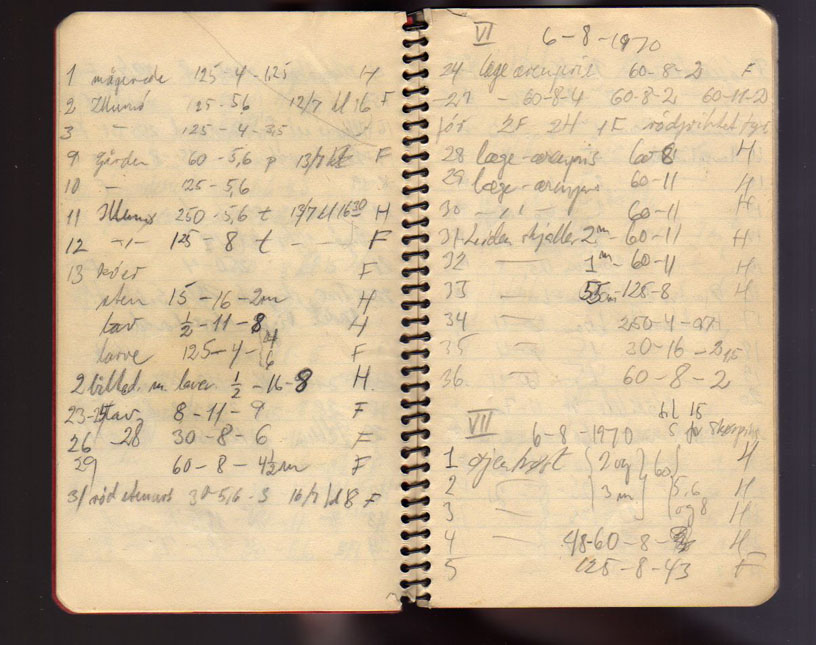 1 mågerede 125-4-1,25 H
2 Illumø 125-5,6 12/7 kl 16 F
3 -"- 125-4-3,5
9 gården 60-5,6 p 13/7 F
10 -"- 125-5,6
11 Illumø 250-5,6 t 13/7 kl 16 30 H
12 -"- 125-8 t - - F
13 F
sten 15-16-2m H
lav ½-11-8 H
larve 125-4- 4 6 F
2 billed. m laver ½-16-8 H.
23-25 lav 8-11-9 F
26-28 30-8-6 F
29 60-8-4½m F
31 rød 30-5,6-3 16/7 kl 8 F
VI 6-8-1970
24 læge ærenpris 60-8-2 F
-27 - 60-8-4 60-8-2 60-11-2
før 2F 2H 1F
28 læge-ærenpris 60 8 H
29 læge-ærenpris 60-11 H
30 -"- 60-11 H
31 Liden skjaller 2m-60-11 H
32 — 1m-60-11 H
33 — 55m-125-8 H
34 — 250-4-
35 — 30-16-
36 — 60-8-2
VII 6-8-1970 kl 15
1 øjentrøst 2 og 60 H
2 — 3 m 5,6 H
3 — og 8 H
4 — 48-60-8- H
5 125-8-43 F